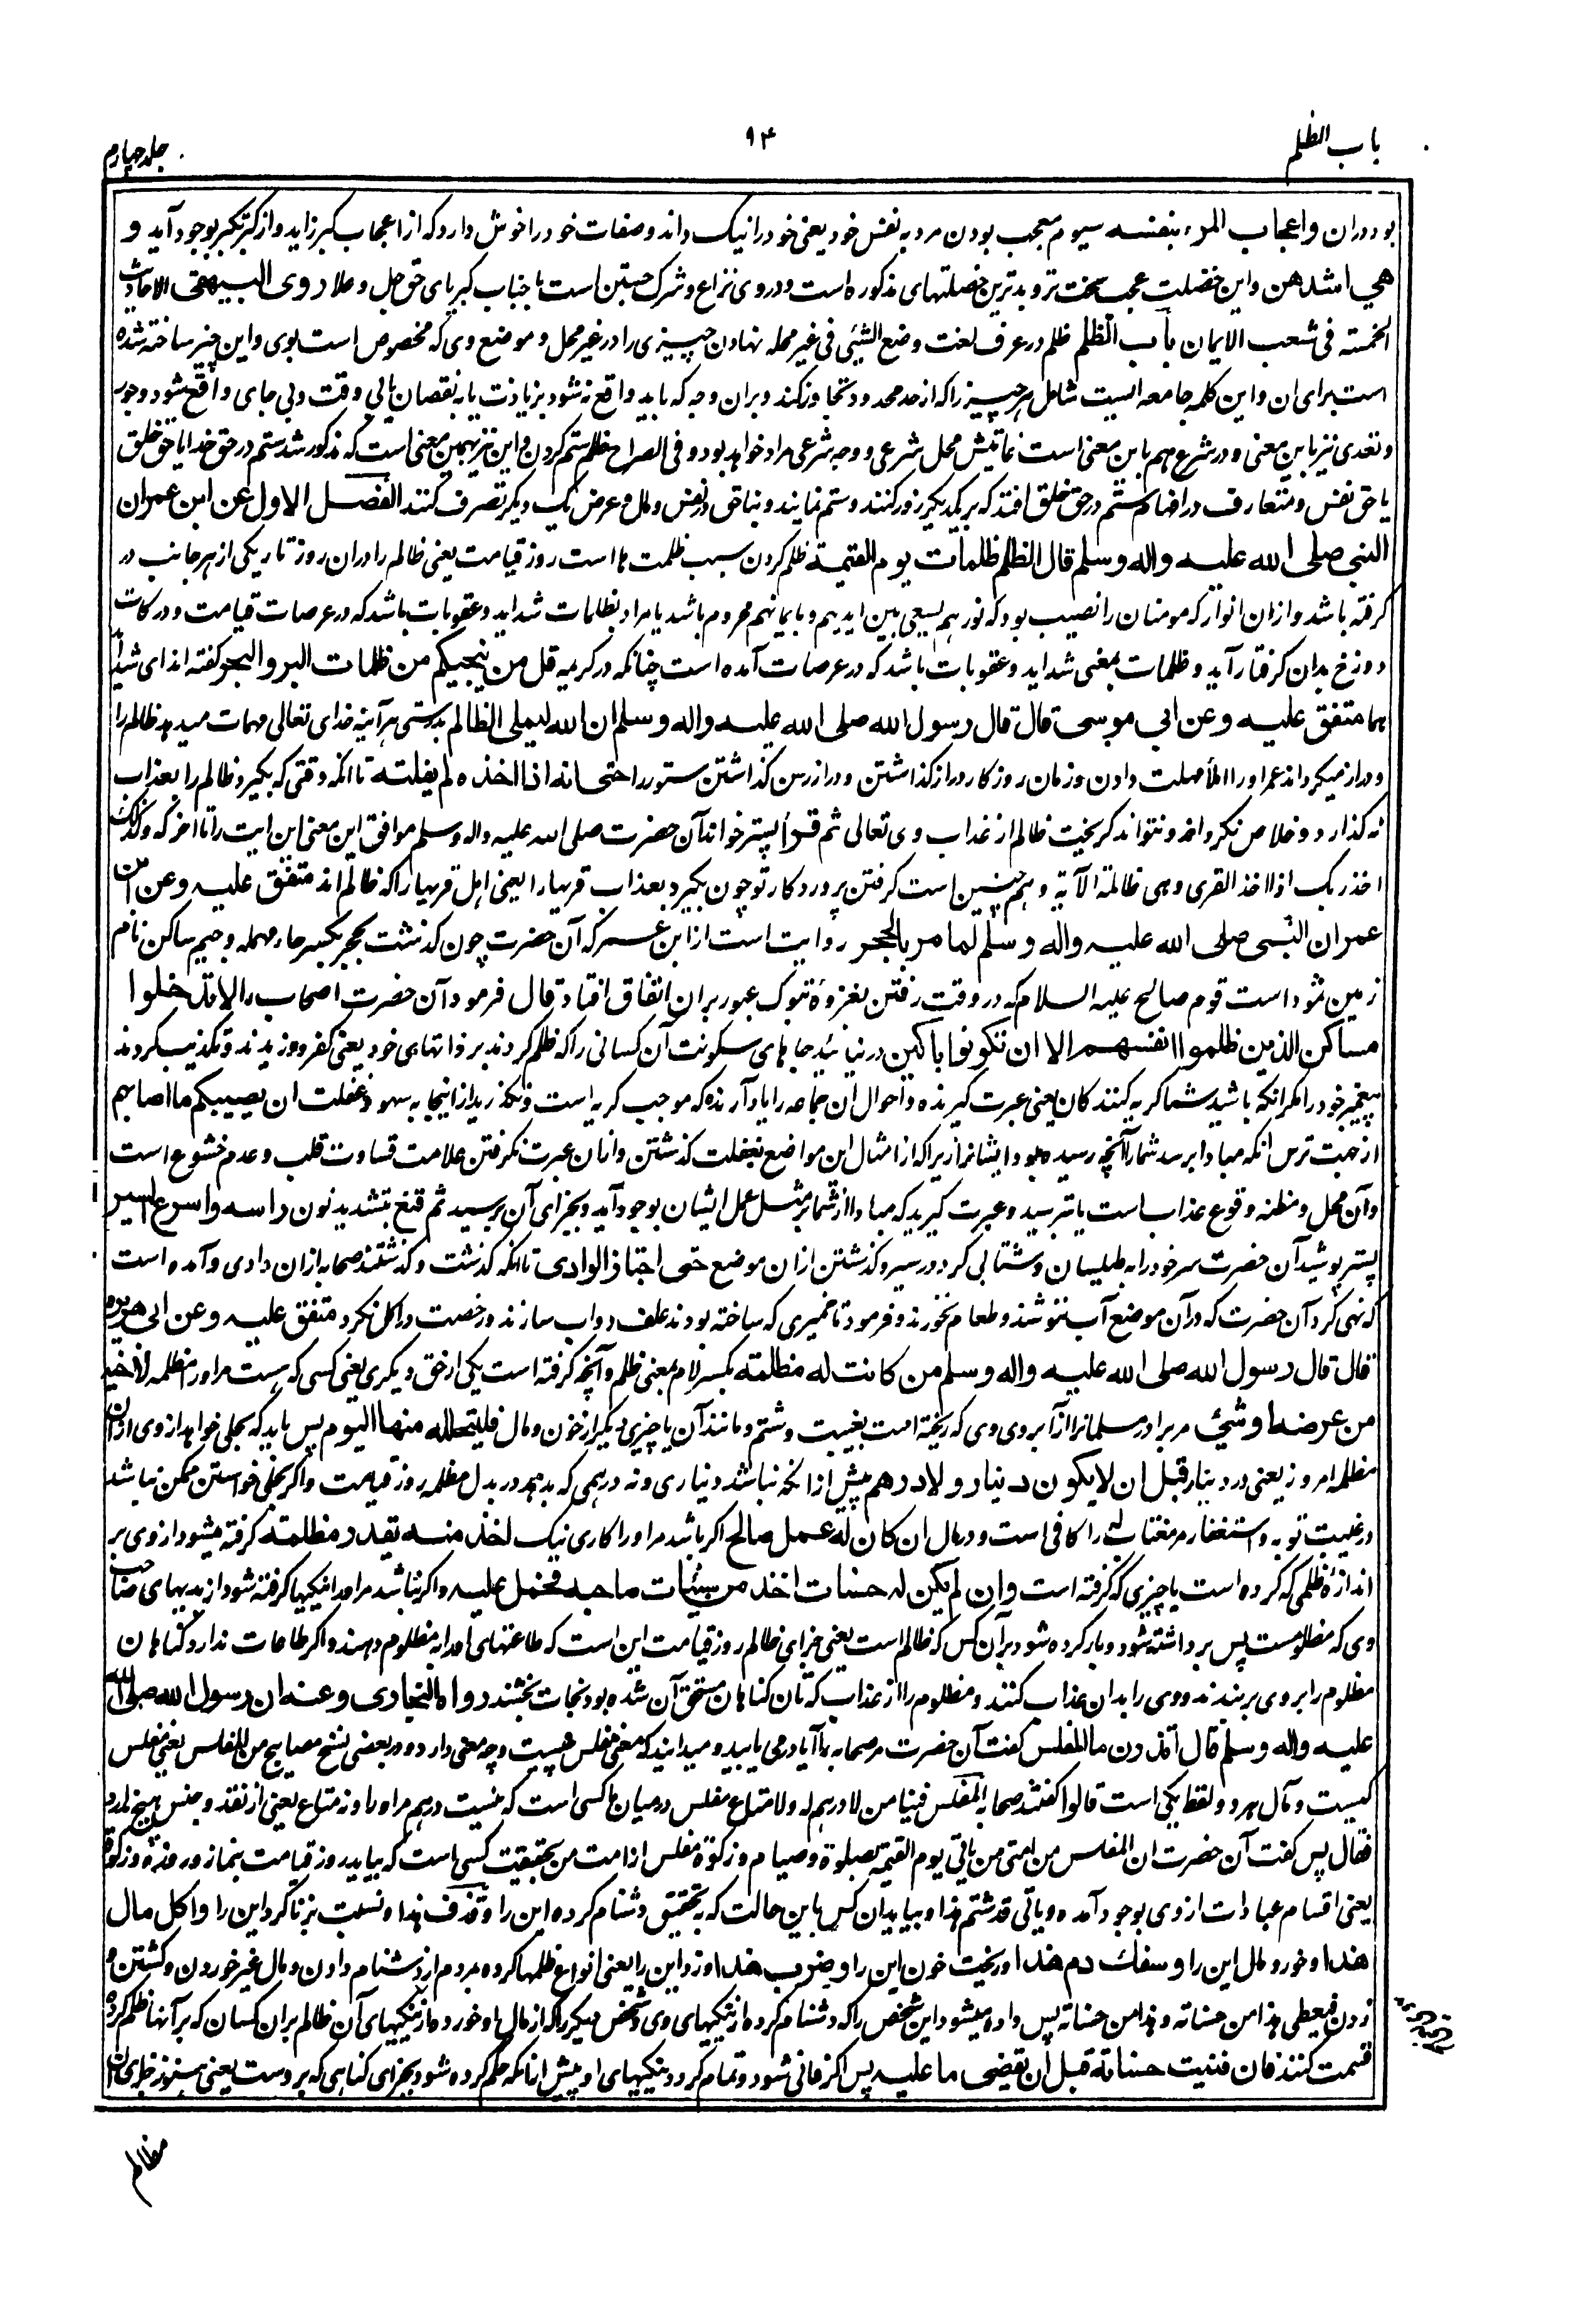 باب الظلم
۹۴
جلد چهارم
بود دران واعجاب المرء بنفسه سیوم معجب بودن مرد به نفس خود یعنی خود را نیک داند و صفات خود را خوش دارد که از اعجاب کبر زاید و از کبر تکبر بوجود آید و
هي اشدهن واین خصلت عجب سخت تر و بدترین خصلتهای مذکوره است و در وی نزاع و شرک جستن است با جناب کبریای حق جل و علا روى البيهقي الاحاديث
الخمسة فی شعب الایمان باب الظلم ظلم در عرف لغت وضع الشئی فی غیر محله نهادن چیزی را در غیر محل و موضع وی که مخصوص است بوی و این چیز ساخته شده
است برای ان و این کلمه جامعه ایست شامل هر چیز را که از حد محدود تجاوز کند و بران وجه که باید واقع نشود بزیادت یا به نقصان یا بی وقت و بی جای واقع شود و جور
و تعدی نیز باین معنی و در شرع هم باین معنی است غایتش محل شرعی و وجه شرعی مراد خواهد بود و فی الصراح ظلم ستم کردن و این نیز بهمین معنی است که مذکور شد ستم در حق خدا یا حق خلق
یا حق نفس و متعارف در اضافت ستم در حق خلق افتد که بر یکدیگر زور کنند و ستم نمایند و بناحق در نفس و مال و عرض یک دیگر تصرف کنند الفصل الاول عن ابن عمر ان
النبی صلى الله عليه واله وسلم قال الظلم ظلمات يوم القيمة ظلم کردن سبب ظلمت ها است روز قیامت یعنی ظالم را دران روز تاریکی از هر جانب در
گرفته باشد و ازان انوار که مومنان را نصیب بود که نورهم یسعی بین ایدیهم و بایمانهم محروم باشد یا مراد بظلمات شداید و عقوبات باشد که در عرصات قیامت و درکات
دوزخ بدان گرفتار آید و ظلمات بمعنی شداید و عقوبات باشد که در عرصات آمده است چنانکه در کریمه قل من ینجیکم من ظلمات البر والبحر گفته اند ای شداید
هما متفق عليه وعن ابي موسى قال قال رسول الله صلى الله عليه واله وسلم ان الله ليملي الظالم بدرستی هر آینه خدای تعالی مهلت میدهد ظالم را
و دراز میگرداند عمر او را املأ مهلت دادن و زمان روزگار دراز گذاشتن و دراز رسن گذاشتن ستور را حتى انه اذا اخذه لم يفلته تا انکه وقتی که بگیرد ظالم را بعذاب
نه گذارد و خلاص نگرداند و نتواند گریخت ظالم از عذاب وی تعالی ثم قرأ پستر خواند آن حضرت صلی الله علیه واله وسلم موافق این معنی این ایت را تا اخر که وکذلک
اخذ ربک اذا اخذ القری وهی ظالمة الآیة و هم چنین است گرفتن پروردگار تو چون بگیرد بعذاب قریها را یعنی اهل قریها را که ظالم اند متفق عليه وعن ابن
عمر ان النبی صلى الله عليه واله وسلم لما مر بالحجر روایت است از ابن عمر که آن حضرت چون گذشت بحجر بکسر حاء مهمله و جیم ساکن نام
زمین ثمود است قوم صالح علیه السلام که در وقت رفتن بغزوه تبوک عبور بران اتفاق افتاد قال فرمود آن حضرت اصحاب را لا تدخلوا
مساكن الذين ظلموا انفسهم الا ان تكونوا باكين در نیایید جاهای سکونت آن کسانی را که ظلم کردند بر ذاتهای خود یعنی کفر ورزیدند و تکذیب کردند
پیغمبر خود را مگر انکه باشید شما گریه کنندگان یعنی عبرت گیرنده و احوال ان جماعه را یاد آرنده که موجب گریه است و نگذرید از اینجا به سهو و غفلت ان يصيبكم ما اصابهم
از جهت ترس انکه مبادا برسد شما را آنچه رسیده بود ایشانرا زیرا که از امثال این مواضع بغفلت گذشتن و ازان عبرت نگرفتن علامت قساوت قلب و عدم خشوع است
و آن محل و مظنه وقوع عذاب است یا بترسید و عبرت گیرید که مبادا از شما نیز مثل عمل ایشان بوجود آید و بجزای آن برسید ثم قنع بتشدید نون راسه واسرع السير
پستر پوشید آن حضرت سر خود را به طیلسان و شتابی کرد در سیر و گذشتن ازان موضع حتى اجتاز الوادي تا انکه گذشت و گذشتند صحابه ازان وادی و آمده است
که نهی کرد آن حضرت که در آن موضع آب ننوشند و طعام نخورند و فرمود تا خمیری که ساخته بودند علف دواب سازند و رخصت در اکل نکرد متفق عليه وعن ابي هريرة
قال قال رسول الله صلى الله عليه واله وسلم من كانت له مظلمة بکسر لام بمعنی ظلم و آنچه گرفته است یکی از حق دیگری یعنی کسی که هست مر او را مظلمه لاخيه
من عرضه او شيء مر برادر مسلمانرا از آبروی وی که ریخته است بغیبت و شتم و مانند آن یا چیزی دیگر از خون و مال فليتحلله منها اليوم پس باید که بحلی خواهد از وی ازان
مظلمه امروز یعنی در دنیا قبل ان لا يكون دينار ولا درهم پیش از انکه نباشد دیناری و نه درهمی که بدهد در بدل مظلمه روز قیامت و اگر بحلی خواستن ممکن نباشد
در غیبت توبه و استغفار مر مغتاب له را کافی است و در مال ان كان له عمل صالح اگر باشد مر او را کاری نیک اخذ منه بقدر مظلمة گرفته میشود از وی بر
اندازه ظلمی که کرده است یا چیزی که گرفته است وان لم يكن له حسنات اخذ من سيئات صاحبه فحمل عليه و اگر نباشد مر او را نیکیها گرفته شود از بدیهای صاحب
وی که مظلومست پس برداشته شود و بار کرده شود بر آن کس که ظالم است یعنی جزای ظالم روز قیامت این است که طاعتهای او را به مظلوم دهند و اگر طاعات ندارد گناهان
مظلوم را بر وی بر بندند و وی را بدان عذاب کنند و مظلوم را از عذاب که بآن گناهان مستحق آن شده بود نجات بخشند رواه البخاري وعنه ان رسول الله صلى الله
عليه واله وسلم قال اتدرون ما المفلس گفت آن حضرت مر صحابه را آیا در می یابید و میدانید که معنی مفلس چیست و چه معنی دارد و در بعضی نسخ مصابیح من المفلس یعنی مفلس
کیست و مآل هر دو لفظ یکی است قالوا گفتند صحابه المفلس فینا من لا درهم له ولا متاع مفلس در میان ما کسی است که نیست درهم مر او را و نه متاع یعنی از نقد و جنس هیچ ندارد
فقال پس گفت آن حضرت ان المفلس من امتی من یاتی یوم القیمة بصلوة وصیام وزکوة مفلس از امت من بحقیقت کسی است که بیاید روز قیامت بنماز و روزه و زکوة
یعنی اقسام عبادات از وی بوجود آمده ویاتی قد شتم هذا و بیاید ان کس باین حالت که به تحقیق دشنام کرده این را وقذف هذا و نسبت بزنا کرد این را واكل مال
هذا و خورد مال این را وسفك دم هذا و ریخت خون این را وضرب هذا و زد این را یعنی انواع ظلمها کرده بمردم از دشنام دادن و مال غیر خوردن و کشتن و
زدن فیعطی هذا من حسناته وهذا من حسناته پس داده میشود این شخص را که دشنام کرده از نیکیهای وی و شخص دیگر را که از مال او خورده از نیکیهای آن ظالم بران کسان که بر آنها ظلم کرده
قسمت کنند فان فنيت حسناته قبل ان يقضى ما عليه پس اگر فانی شود و تمام گردد نیکیهای او پیش ازانکه حکم کرده شود بجزای گناهی که بر وست یعنی هنوز جزای ان
مظالم